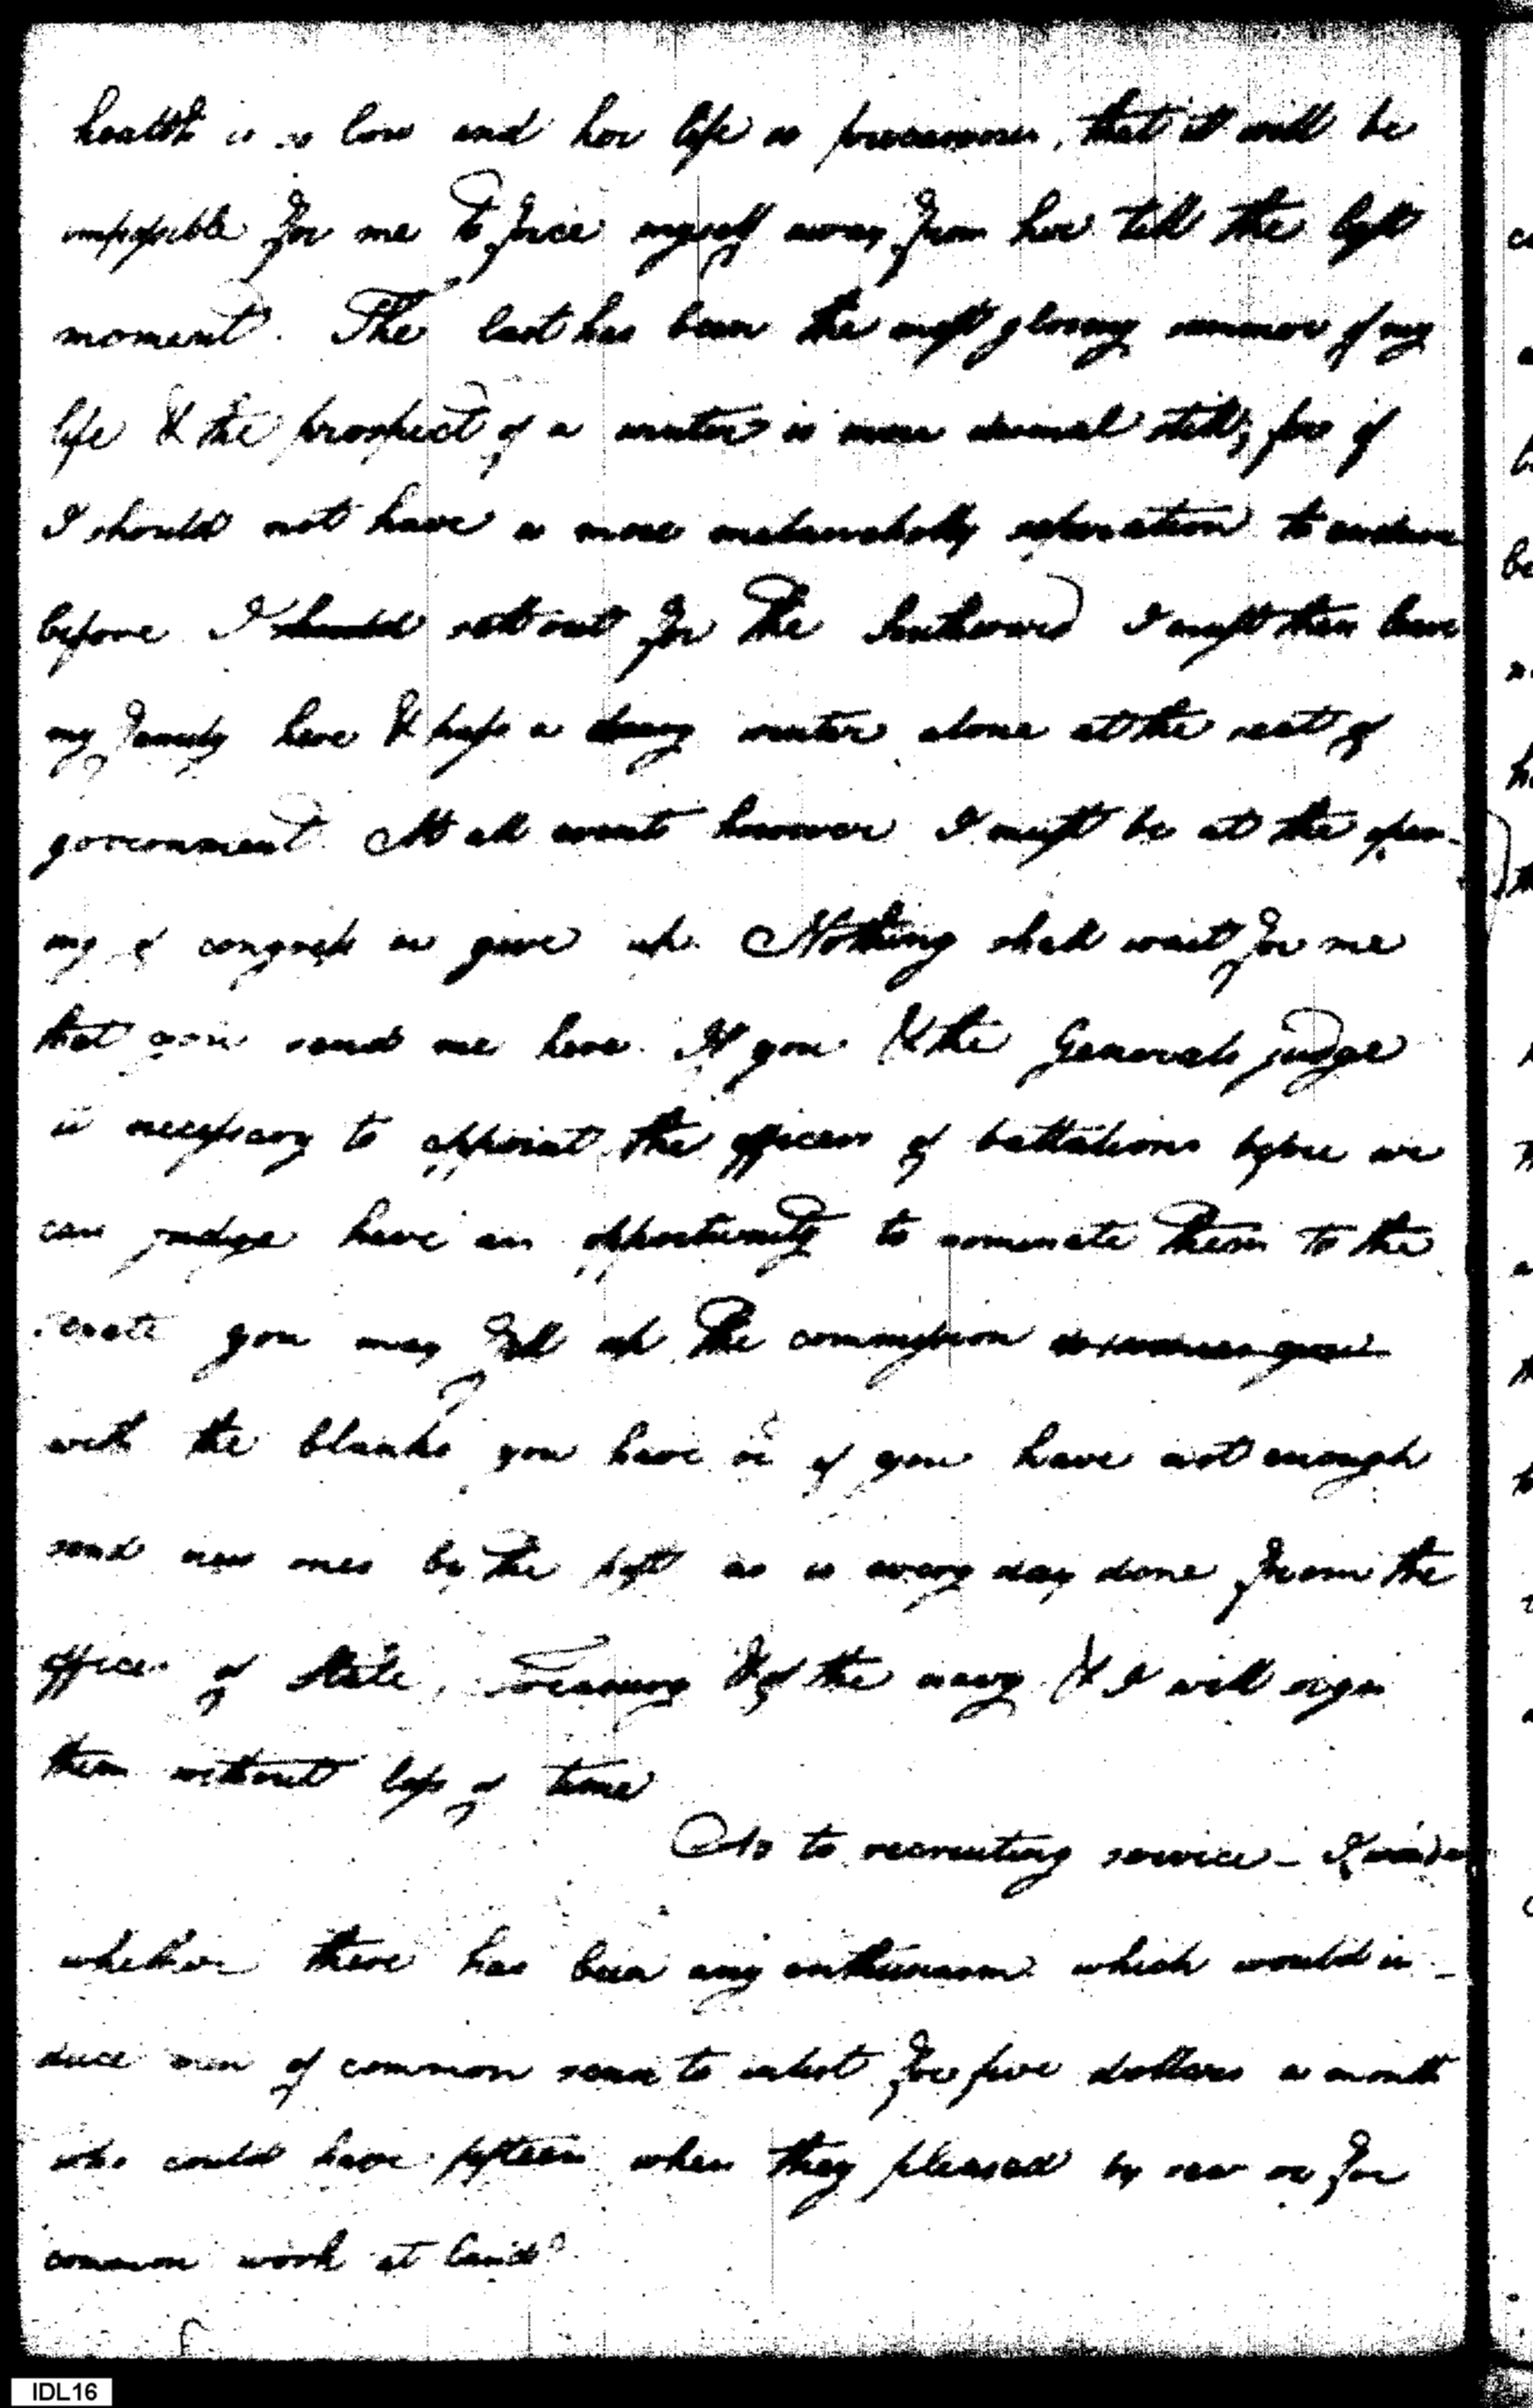 health is so low and her life so precarious, that it will be
impossible for me to force myself away from her till the last
moment. The last has been the most gloomy summer of my
life & the prospect of a winter is more dismal still; for if
I should not have a more melancholly seperation to endure
before I should sett out for the Southward I must then leave
my family here & pass a dreary winter alone at the seat of
government. At all events however I must be at the open-
ing of congress or give up. Nothing shall wait for me
that you send me here. If you & the Generals judge
it necessary to appoint the officers of battalions before we
can judge have an opportunity to nominate them to the
senate you may fill up the commission
with the blanks you have or if you have not enough
send new ones by the post as is every day done from the
offices of State, Treasury & of the navy & I will sign
them without loss of time
As to recruiting service – I wonder
whether there has been any enthusiasm which would in-
duce men of common sense to enlist for five dollars a month
who could have fifteen when they pleased by sea or for
common work at land?
IDL16